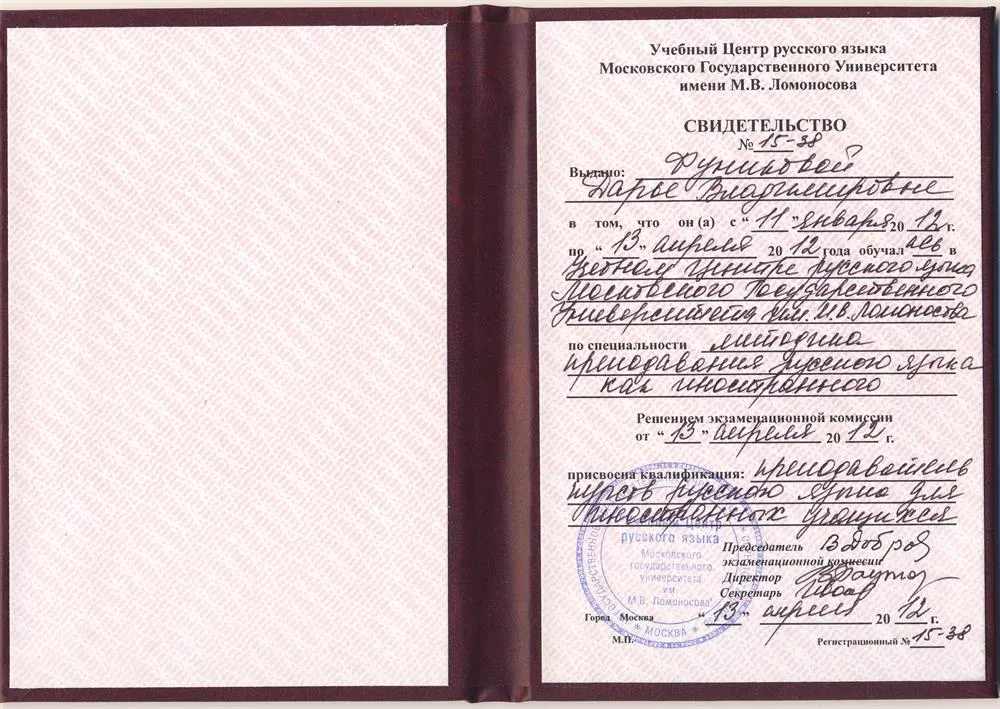 Учебный Центр русского языка
Московского Государственного Университета
имени М.В. Ломоносова
СВИДЕТЕЛЬСТВО
№ 15-38
Выдано:
Дарье Владимировне
в том, что он (а) с “ 11 ” января 20 12 г.
по “ 13 ” апреля 20 12 года обучалась в
Учебном Центре русского языка
Московского Государственного
Университета им. М.В. Ломоносова
по специальности методика
преподавания русского языка
как иностранного
Решением экзаменационной комиссии
от “ 13 ” апреля 20 12 г.
присвоена квалификация: преподаватель
курсов русского языка для
иностранных учащихся
Председатель
экзаменационной комиссии
Директор
Секретарь
Город Москва “ 13 ” апреля 20 12 г.
М.П. Регистрационный № 15-38
центр
русского языка
Московского
государственного
университета
им.
М.В. Ломоносова
* МОСКВА *